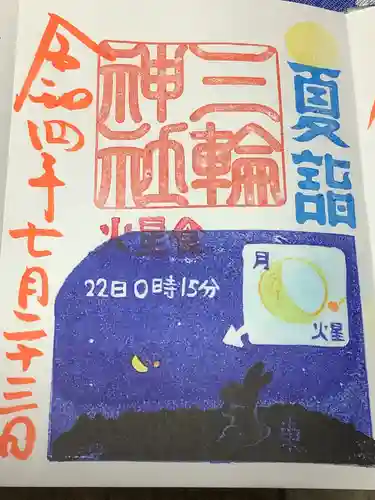 夏詣
三輪
神社
火星食
令和四年七月二十三日
22日0時15分
月
火星